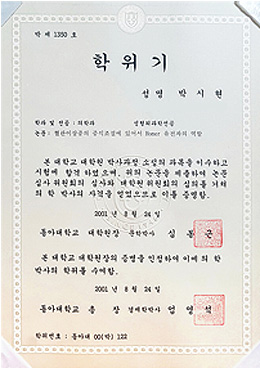 박 제 1350 호
학 위 기
성 명 박 시 현
학과 및 전공 : 의학과 성형외과학전공
논문 : 혈관이상종의 증식조절에 있어서 Homer 유전자의 역할
본 대학교 대학원 박사과정 소정의 과목을 이수하고
시험에 합격 하였으며, 위의 논문을 제출하여 논문
심사 위원회의 심사와 대학원 위원회의 심의를 거쳐
의 학 박사의 자격을 얻었으므로 이를 증명함.
2001 년 8 월 24 일
동아대학교 대학원장 문학박사 심 봉 근
본 대학교 대학원장의 증명을 인정하여 이에 의 학
박사의 학위를 수여함.
2001 년 8 월 24 일
동아대학교 총 장 경제학박사 엄 영 석
학위번호 : 동아대 00(박) 122